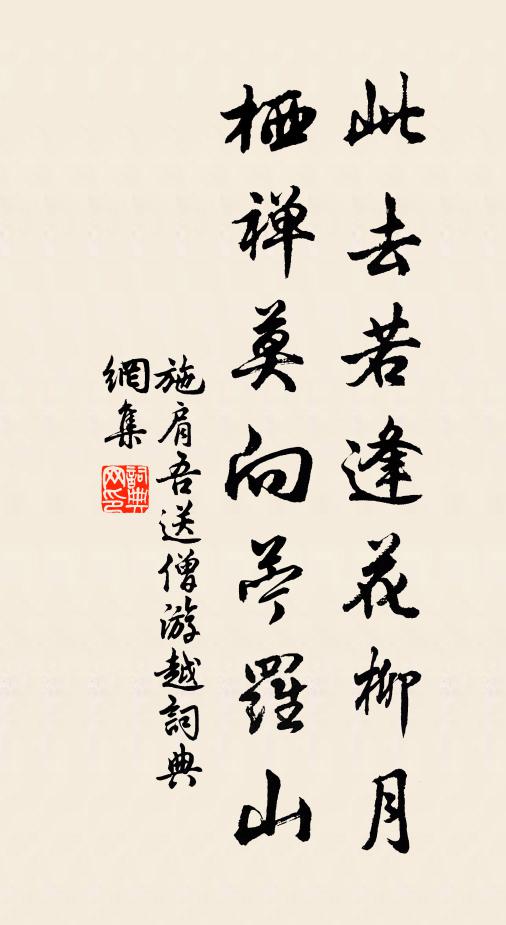 此去若逢花柳月
栖禅莫向苧羅山
施肩吾送僧游越詞典
網集
詞典
网印